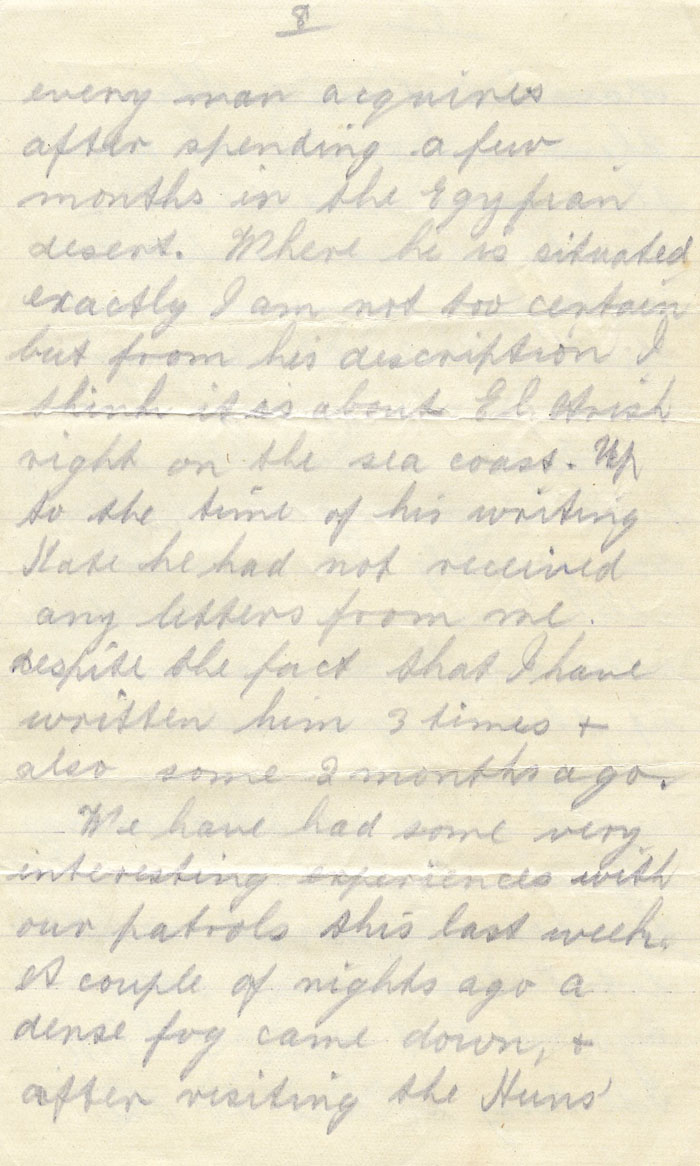 8
every man acquires
after spending a few
months in the Egyptian
desert. Where he is situated
exactly I am not too certain
but from his description I
think it is about El Arish
right on the sea coast. Up
to the time of his writing
Kate he had not received
any letters from me.
despite the fact that I have
written him 3 times +
also some 2 months ago.
We have had some very
interesting experiences with
our patrols this last week.
A couple of nights ago a
dense fog came down, +
after visiting the Huns'